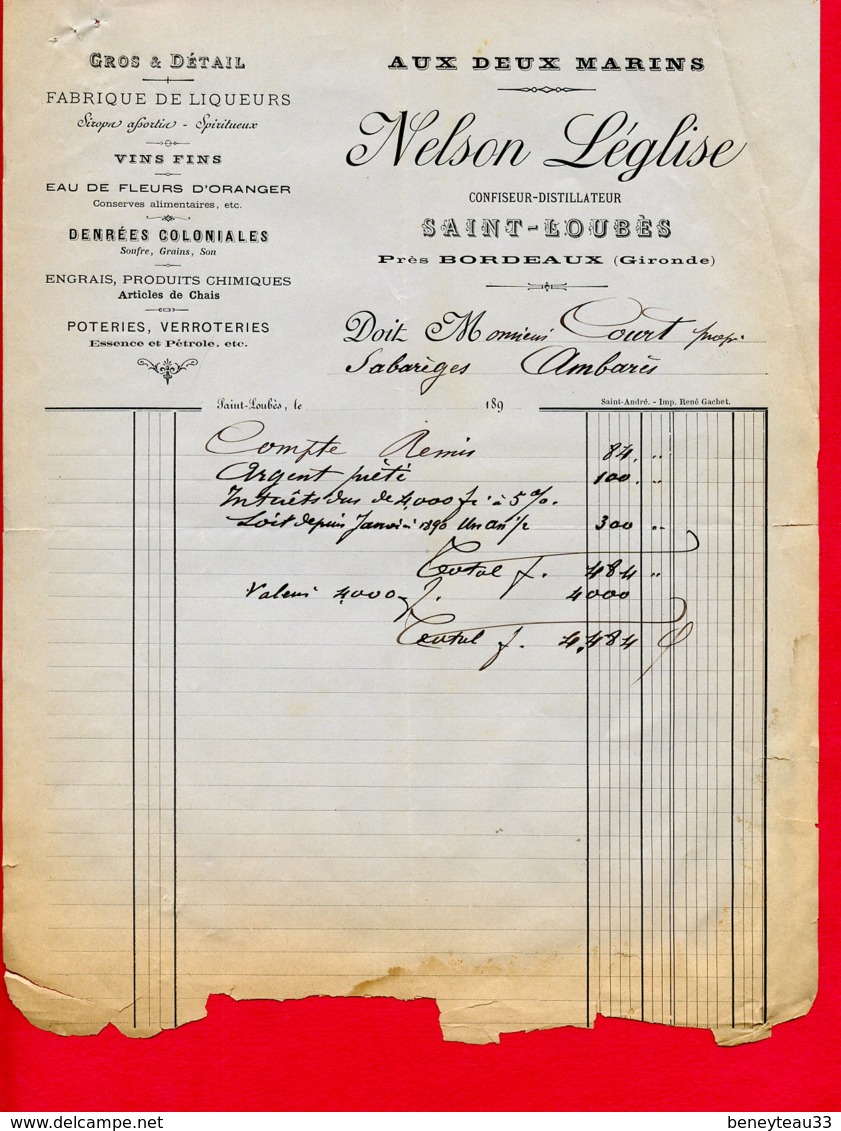 GROS & DÉTAIL
FABRIQUE DE LIQUEURS
Sirops assortis - Spiritueux
VINS FINS
EAU DE FLEURS D'ORANGER
Conserves alimentaires, etc.
DENRÉES COLONIALES
Soufre, Grains, Son
ENGRAIS, PRODUITS CHIMIQUES
Articles de Chais
POTERIES, VERROTERIES
Essence et Pétrole, etc.
AUX DEUX MARINS
Nelson Léglise
CONFISEUR-DISTILLATEUR
SAINT-LOUBÈS
Près BORDEAUX (Gironde)
Doit Monsieur Court propr.
Sabarèges Ambarès
Saint-Loubès, le 189
Saint-André. - Imp. René Gachet.
Compte Remis 84 "
Argent prêté 100 "
Intérêts dus de 4,000 fr à 5 %.
Soit depuis Janvier 1890 Un an 1/2 300 "
Total f. 484 "
Valeur 4,000 f. 4000
Total f. 4,484
beneyteau33